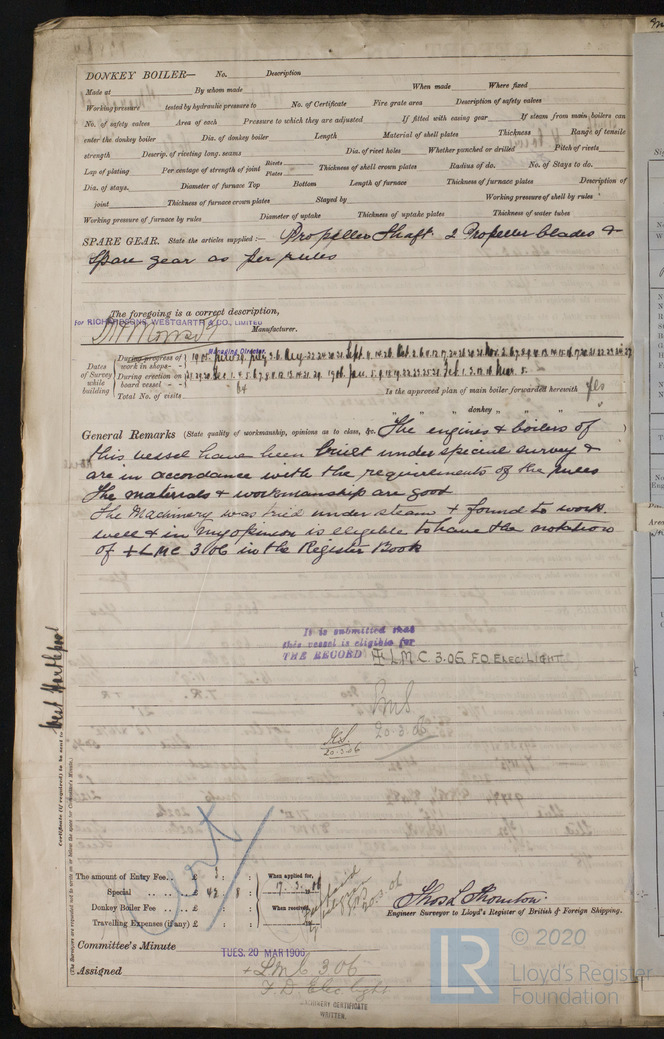 DONKEY BOILER— No. Description
Made at By whom made When made Where fixed
Working pressure tested by hydraulic pressure to No. of Certificate Fire grate area Description of safety valves
No. of safety valves Area of each Pressure to which they are adjusted If fitted with easing gear If steam from main boilers can
enter the donkey boiler Dia. of donkey boiler Length Material of shell plates Thickness Range of tensile
strength Descrip. of riveting long. seams Dia. of rivet holes Whether punched or drilled Pitch of rivets
Lap of plating Per centage of strength of joint Rivets Plates Thickness of shell crown plates Radius of do. No. of Stays to do.
Dia. of stays. Diameter of furnace Top Bottom Length of furnace Thickness of furnace plates Description of
joint Thickness of furnace crown plates Stayed by Working pressure of shell by rules
Working pressure of furnace by rules Diameter of uptake Thickness of uptake plates Thickness of water tubes
SPARE GEAR. State the articles supplied:— Propeller Shaft 2 Propeller blades &
Spare gear as per rules
The foregoing is a correct description,
For RICHARDSONS, WESTGARTH & CO., LIMITED
Manufacturer.
Managing Director.
Dates of Survey while building
During progress of work in shops - -
During erection on board vessel - - -
Total No. of visits 64
Is the approved plan of main boiler forwarded herewith Yes
" " " donkey " " "
General Remarks (State quality of workmanship, opinions as to class, &c. The engines & boilers of
this vessel have been built under special survey &
are in accordance with the requirements of the rules
The materials & workmanship are good
The Machinery was tried under steam & found to work
well & in my opinion is eligible to have the notation
of + LMC 3.06 in the Register Book
It is submitted that
this vessel is eligible for
THE RECORD + LMC 3.06 F.D. ELEC: LIGHT
20.3.06
20.3.06
West Hartlepool
Certificate (if required) to be sent to
(The Surveyors are requested not to write on or below the space for Committee's Minute.)
The amount of Entry Fee.. £ 3 : :
Special .. .. £ 42 : 8 :
Donkey Boiler Fee .. .. £ : :
Travelling Expenses (if any) £ : :
When applied for,
7.3.06
When received,
20.3.06
Thos L Thornton
Engineer Surveyor to Lloyd's Register of British & Foreign Shipping.
Committee's Minute TUES. 20 MAR 1906
Assigned + LMC 3.06
F.D. Elec light
MACHINERY CERTIFICATE
WRITTEN.
© 2020
LR
Lloyd's Register
Foundation